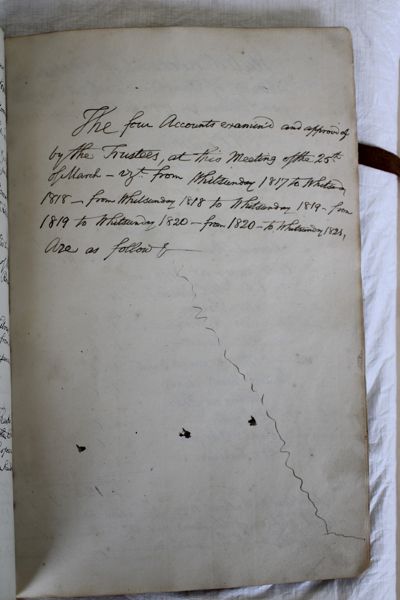 The four Accounts examin'd and approv'd of
by the Trustees, at this Meeting of the 25th
of March – vizt. from Whitsunday 1817 to Whitsunday
1818 – from Whitsunday 1818 to Whitsunday 1819 – from
1819 to Whitsunday 1820 – from 1820 – to Whitsunday 1821,
Are as follow